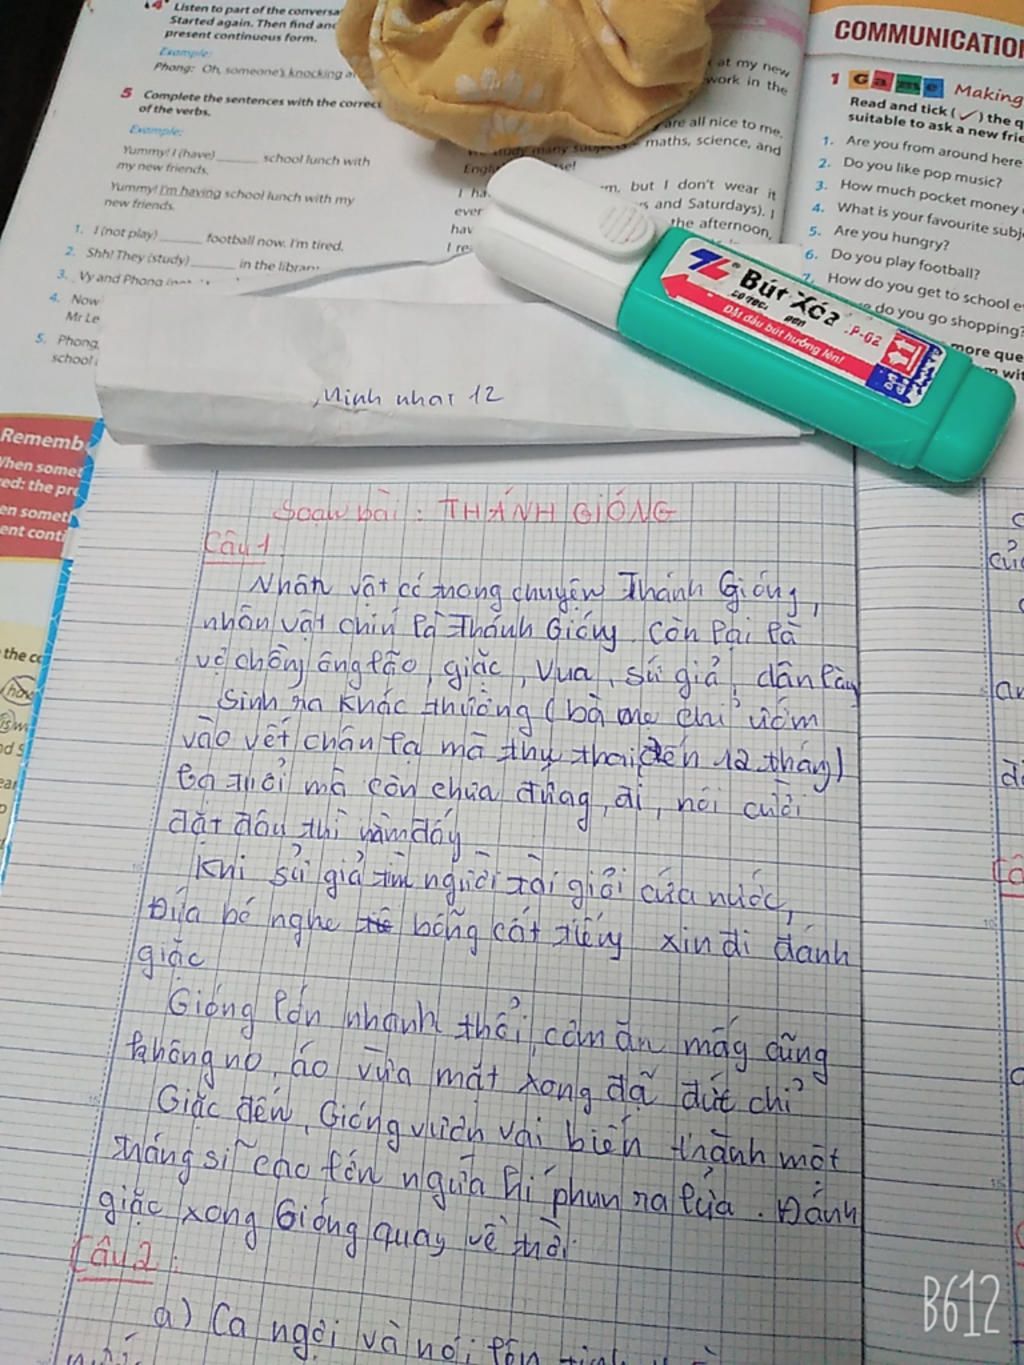 4 Listen to part of the conversa
Started again. Then find and
present continuous form.
Example:
Phong: Oh, someone's knocking a
5 Complete the sentences with the correc
of the verbs.
Example:
Yummy! I (have) ______ school lunch with
my new friends.
Yummy! I'm having school lunch with my
new friends.
1. I (not play) ______ football now. I'm tired.
2. Shh! They (study) ______ in the library
3. Vy and Phong
4. Now
Mr Le
5. Phong,
school
at my new
work in the
are all nice to me.
maths, science, and
Engl
I ha
m, but I don't wear it
ever
s and Saturdays). I
hav
the afternoon,
I re
COMMUNICATIO
1 Game Making
Read and tick (✓) the q
suitable to ask a new frie
1. Are you from around here
2. Do you like pop music?
3. How much pocket money
4. What is your favourite subj
5. Are you hungry?
6. Do you play football?
7. How do you get to school e
do you go shopping?
more que
wit
TL
Bút Xóa
CP-02
Đặt đầu bút hướng lên!
Minh nhat 12
Rememb
When somet
ed: the pre
en someth
ent conti
the co
Soạn bài: THÁNH GIÓNG
Câu 1
Nhân vật có trong chuyện Thánh Gióng,
nhân vật chín là Thánh Gióng. Còn lại là
vợ chồng ông lão, giặc, vua, sứ giả, dân làng
Sinh ra khác thường (bà mẹ chỉ ướm
vào vết chân lạ mà thụ thai đến 12 tháng)
ba tuổi mà còn chưa đứng, đi, nói cười
đặt đâu thì nằm đấy
Khi sứ giả tìm người tài giỏi cứa nước,
Đứa bé nghe bỗng cất tiếng xin đi đánh
giặc
Gióng lớn nhanh thổi, cơm ăn mấy cũng
không no, áo vừa mặt xong đã đứt chỉ
Giặc đến, Gióng vươn vai biến thành một
tráng sĩ cao lớn ngựa hí phun ra lửa. Đánh
giặc xong Gióng quay về trời.
Câu 2:
a) Ca ngợi và nói lên
B612